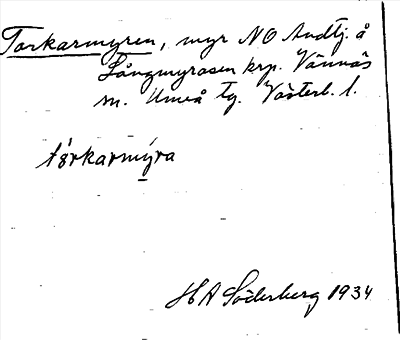 Torkarmyren, myr NO Andtj. å
Långmyrosen krp. Vännäs
sn. Umeå tg. Västerb. l.
tårkarmýra
H A Söderberg 1934